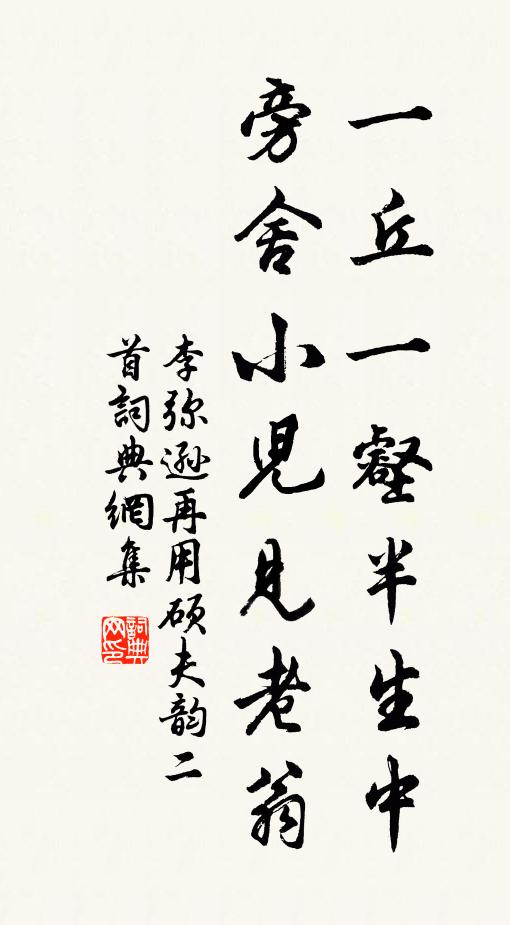 一丘一壑半生中
旁舍小児見老翁
李弥遜再用碩夫韵二
首詞典網集
詞典
网印